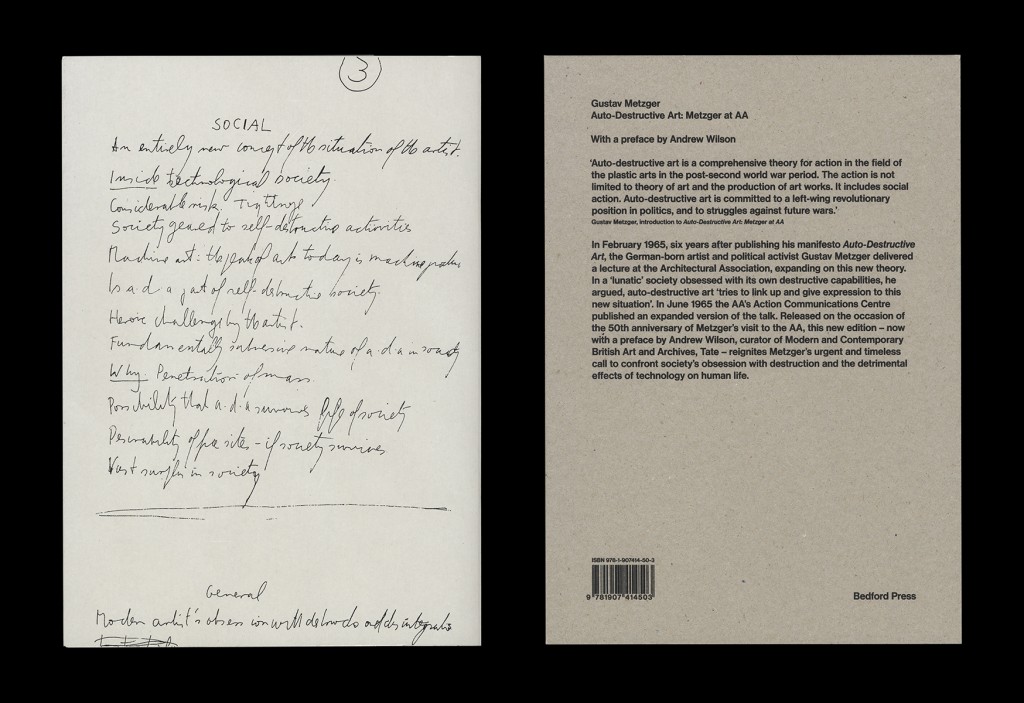 3
SOCIAL
An entirely new concept of the situation of the artist.
Inside technological society.
Considerable risk.
Society geared to self-destructive activities
Machine art: the peak of art today is machine
Is a.d.a part of self-destructive society.
Heroic challenge by the artist.
Fundamentally subversive nature of a.d.a in society
Why. Penetration of mass
Possibility that a.d.a survives life of society
Desirability of - if society survives
Vast surplus in society
General
Modern artist's obsession with and disintegration
Gustav Metzger
Auto-Destructive Art: Metzger at AA
With a preface by Andrew Wilson
‘Auto-destructive art is a comprehensive theory for action in the field of
the plastic arts in the post-second world war period. The action is not
limited to theory of art and the production of art works. It includes social
action. Auto-destructive art is committed to a left-wing revolutionary
position in politics, and to struggles against future wars.’
Gustav Metzger, introduction to Auto-Destructive Art: Metzger at AA
In February 1965, six years after publishing his manifesto Auto-Destructive
Art, the German-born artist and political activist Gustav Metzger delivered
a lecture at the Architectural Association, expanding on this new theory.
In a ‘lunatic’ society obsessed with its own destructive capabilities, he
argued, auto-destructive art ‘tries to link up and give expression to this
new situation’. In June 1965 the AA’s Action Communications Centre
published an expanded version of the talk. Released on the occasion of
the 50th anniversary of Metzger’s visit to the AA, this new edition – now
with a preface by Andrew Wilson, curator of Modern and Contemporary
British Art and Archives, Tate – reignites Metzger’s urgent and timeless
call to confront society’s obsession with destruction and the detrimental
effects of technology on human life.
ISBN 978-1-907414-50-3
9 781907 414503
Bedford Press